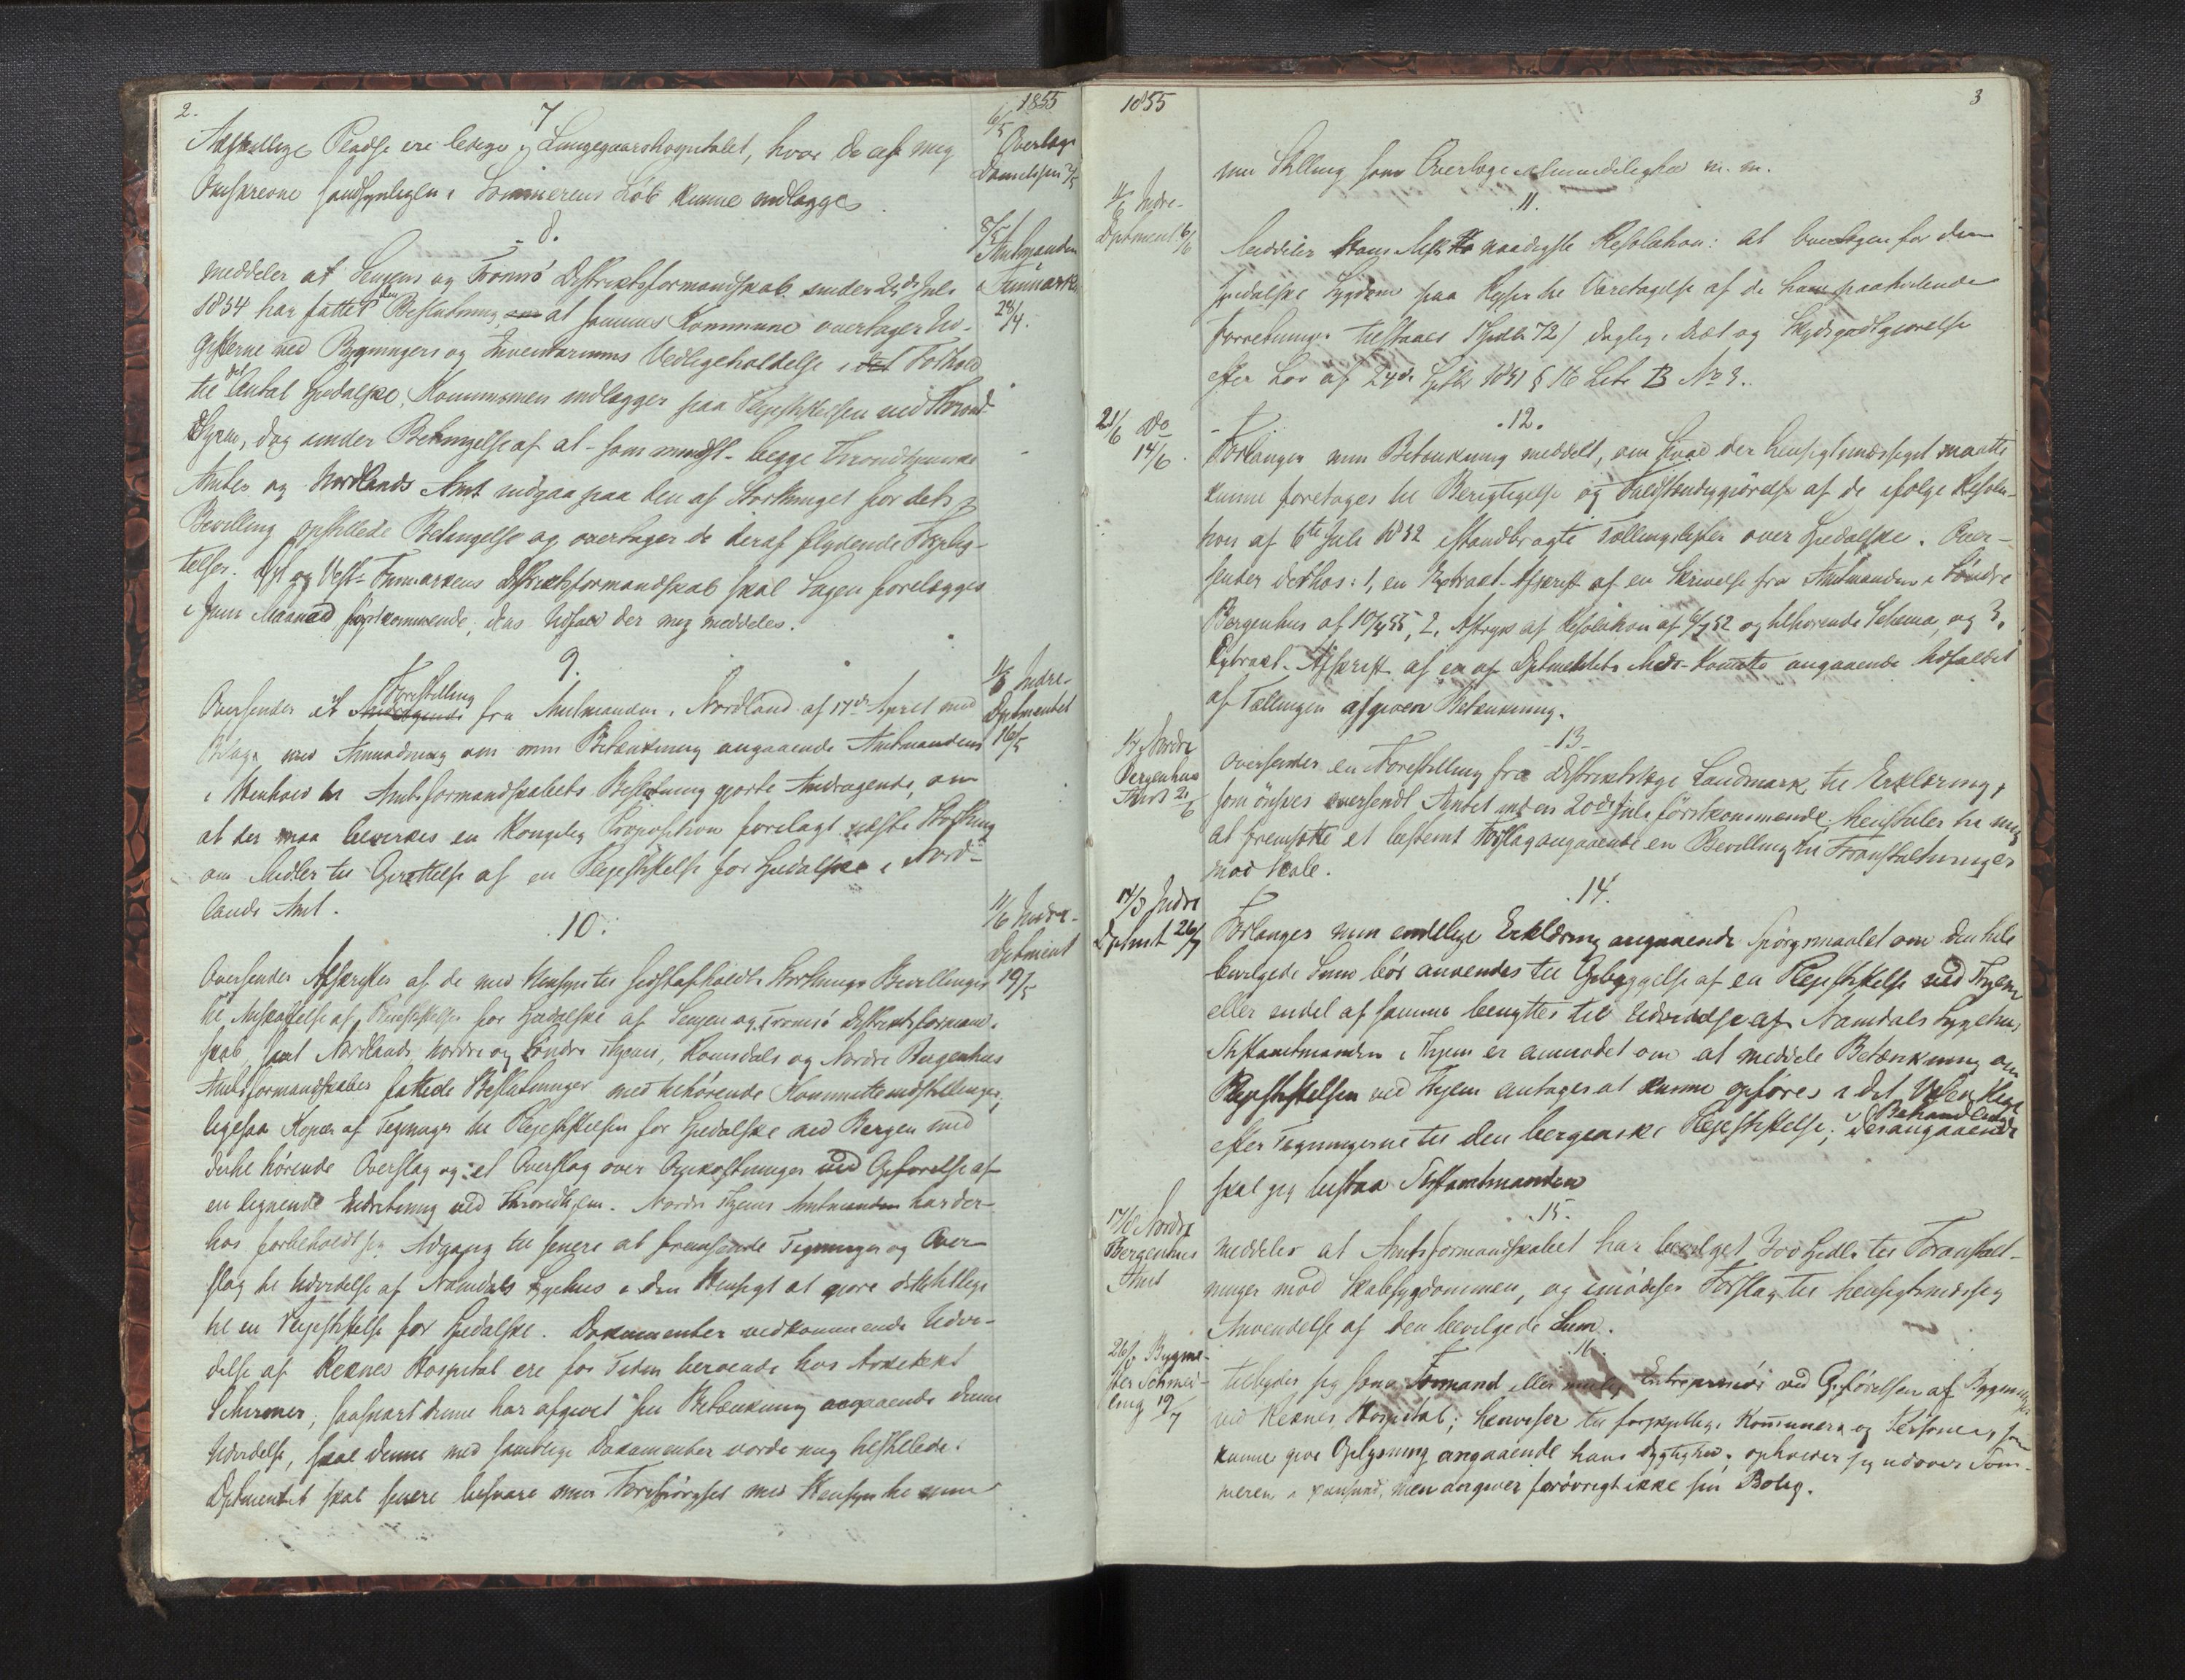 2.
1855
7
6/5 Overlæge
Danielssen 2/5
Adskillige Pladse ere ledige i Lungegaardshospitalet, hvor de af mig
Omskrevne sandsynligen i Sommerens Løb kunne indlægges.
8.
8/5 Amtmanden
i Finmarken
28/4.
meddeler at Senjens og Tromsø Distriktsformandskab under 2den Juli
1854 har fattet den Beslutning, om at sammes Kommune overtager Ud-
gifterne ved Bygningers og Inventariums Vedligeholdelse i det Forhold
til det Antal Spedalske, Kommunen indlægger paa Plejestiftelsen ved Thrond-
hjem, dog under Betingelse af at - som mindst - begge Throndhjemske
Amter og Nordlands Amt indgaa paa den af Storthinget for dets
Bevilling opstillede Betingelse og overtager de deraf flydende Forplig-
telser. Øst og Vest-Finmarkens Distriktsformandskab skal Sagen forelægges
i Juni Maaned førstkommende, dens Udfald der mig meddeles.
9.
1/6 Indre-
Dptmentet
16/5
Oversender et Forestilling Andragende fra Amtmanden i Nordland af 17de April med
Bilage med Anmodning om min Betænkning angaaende Amtmandens
i Henhold til Amtsformandskabets Beslutning gjorte Andragende, om
at der maa bevirkes en Kongelig Proposition forelagt næste Storthing
om Midler til Oprettelse af en Plejestiftelse for Spedalske i Nord-
lands Amt.
10.
11/6 Indre-
Dptment
19/5
Oversender Afskrifter af de med Hensyn til sidstafholdte Storthings Bevillinger
til Anskaffelse af Pleiestiftelser for Spedalske af Senjen og Tromsø Distriktsformand-
skab, samt Nordlands, Nordre og Søndre Thjems, Romsdals og Nordre Bergenhus
Amtsformandskaber fattede Beslutninger med tilhørende Kommitteindstillinger,
ligesaa Kopier af Tegninger til Plejestiftelsen for Spedalske ved Bergen med
dertil hørende Overslag og et Overslag over Omkostninger ved Opførelse af
en lignende Indretning ved Throndhjem. Nordre Thjems Amtmanden har der-
hos forbeholdt sig Adgang til senere at fremsende Tegninger og Over-
slag til Udvidelse af Namdals Sygehus i den Hensigt at gjøre det tillige
til en Plejestiftelse for Spedalske. Dokumenter vedkommende Udvi-
delse af Reknes Hospital ere for Tiden beroende hos Arkitekt
Schirmer; saasnart denne har afgivet sin Betænkning angaaende denne
Udvidelse, skal denne med samtlige Dokumenter vorde mig tilstillede.
Dptmentet skal senere besvare min Forespørgsel med Hensyn til min
1855
3
min Stilling som Overlæge m. m.
11.
4/6 Indre-
Dptment 6/6
Meddeler Hans Majts naadigste Resolution: at Overlægen for den
spedalske Sygdom paa Rejser til Varetagelse af de ham paahvilende
Forretninger tilstaaes 1 Spdlr 72 ß daglig i Diæt og Skydsgodtgjørelse
efter Lov af 24de Septbr 1851 § 16 Litr B No 3.
12.
21/6 Do
14/6.
Forlanger min Betænkning meddelt, om hvad der hensigtsmæssigst maatte
kunne foretages til Berigtigelse og Fuldstændiggjørelse af de ifølge Resolu-
tion af 6te Juli 1852 istandbragte Tællingslister over Spedalske. Over-
sender derhos: 1, en Extract-Afskrift af en Skrivelse fra Amtmanden i Søndre
Bergenhus af 10/4 55, 2, Aftryk af Resolution af 6/7 52 og tilhørende Schema, og 3,
Extract-Afskrift af en af Dptmentets Medi-Komitte angaaende Udfaldet
af Tællingen afgiven Betænkning.
13
1/7 Nordre
Bergenhus
Amt 21/6
oversender en Forestilling fra Distriktslæge Landmark til Erklæring,
som ønskes oversendt Amtet inden 20de Juli førstkommende; henstiller til mig
at fremsætte et bestemt Forslag angaaende en Bevilling til Foranstaltninger
mod Skab.
14.
14/8 Indre
Dptmt 26/7
Forlanger min endelige Erklæring angaaende Spørgsmaalet om den hele
bevilgede Sum bør anvendes til Opbyggelse af en Plejestiftelse ved Thjem
eller endel af samme benyttes til Udvidelse af Namdals Sygehus,
Stiftamtmanden i Thjem er anmodet om at meddele Betænkning om
Plejestiftelsen ved Thjem antages at kunne opføres i det Væsentlige
efter Tegningerne til den bergenske Plejestiftelse; i Behandlingen desangaaende
skal jeg bistaa Stiftamtmanden
15.
17/8 Nordre
Bergenhus
Amt
meddeler at Amtsformandskabet har bevilget 300 Spdlr til Foranstalt-
ninger mod Skabsygdommen, og imødeser Forslag til hensigtsmæssig
Anvendelse af den bevilgede Sum.
16.
26/8 Bygme-
ster Schmei-
19/7
tilbyder sig som Formand eller Entreprenør ved Opførelsen af Bygninger
ved Reknes Hospital; henviser til forskjellige Kommuner og Personer, som
kunne give Oplysning angaaende hans Dygtighed; opholder sig udover Som-
meren i men angiver forøvrigt ikke sin Bolig.